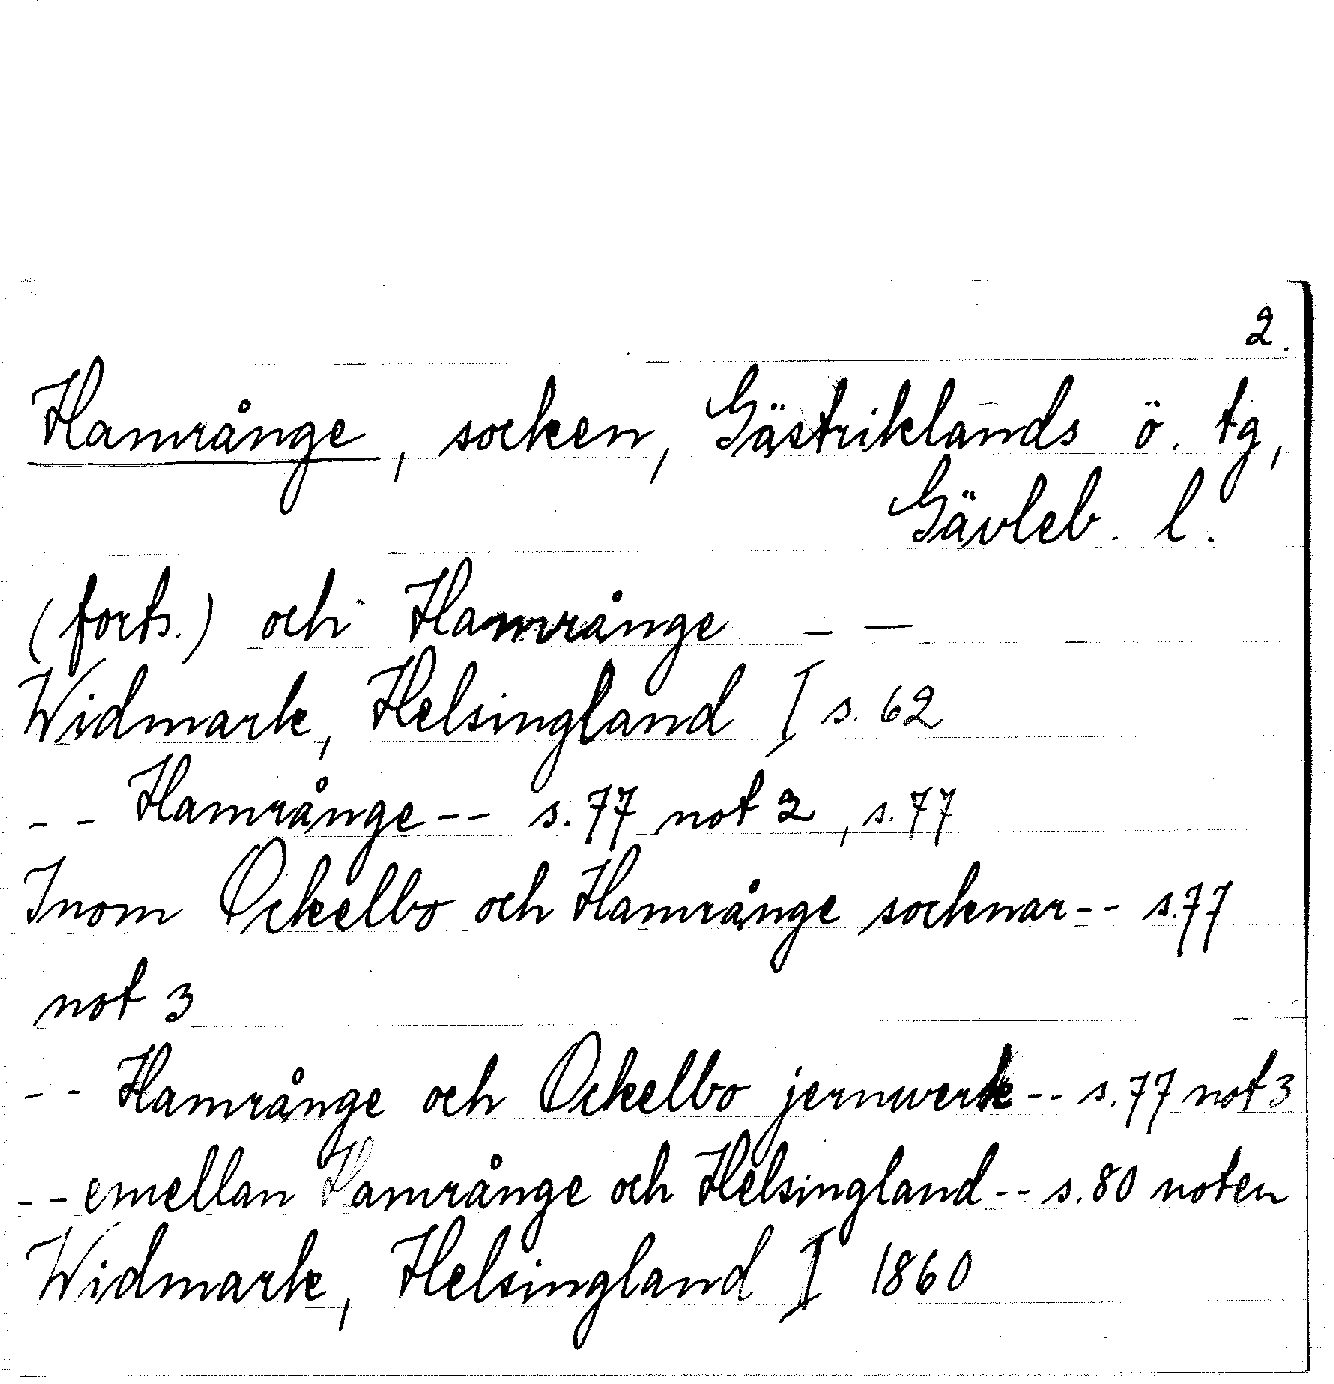 2.
Hamrånge, socken, Gästriklands ö. tg,
Gävleb. l.
(forts.) och Hamrånge - -
Widmark, Helsingland I s. 62
- - Hamrånge - - s. 77 not 2, s. 77
Inom Ockelbo och Hamrånge socknar - - s. 77
not 3
- - Hamrånge och Ockelbo jernwerk - - s. 77 not 3
- - emellan Hamrånge och Helsingland - - s. 80 noten
Widmark, Helsingland I 1860